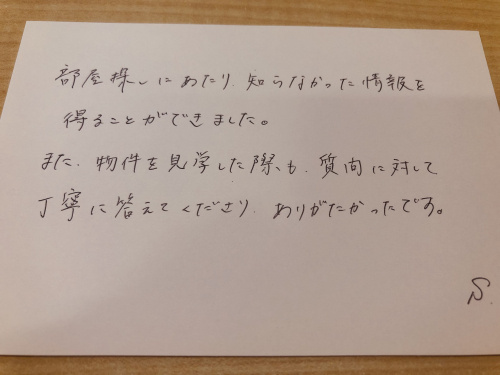 部屋探しにあたり、知らなかった情報を
得ることができました。
また、物件を見学した際も、質問に対して
丁寧に答えてくださり、ありがたかったです。
S.